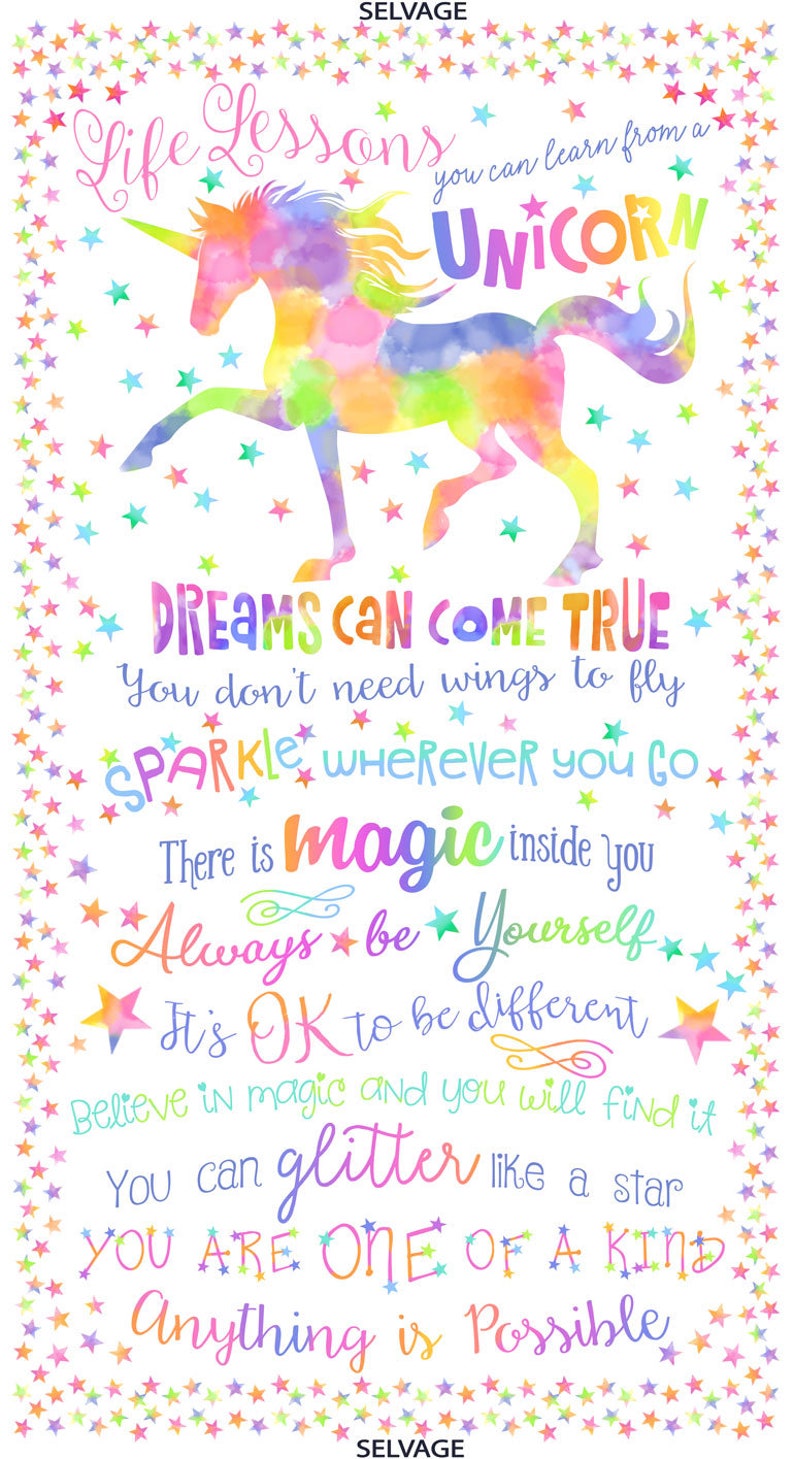 SELVAGE
Life Lessons
you can learn from a
UNiCORN
DREAMS CAN COME TRUE
You don't need wings to fly
SPARKLE WHEREVER YOU GO
There is magic inside you
Always be Yourself
It's OK to be different
Believe in magic and you will find it
You can glitter like a star
YOU ARE ONE OF A KIND
Anything is Possible
SELVAGE